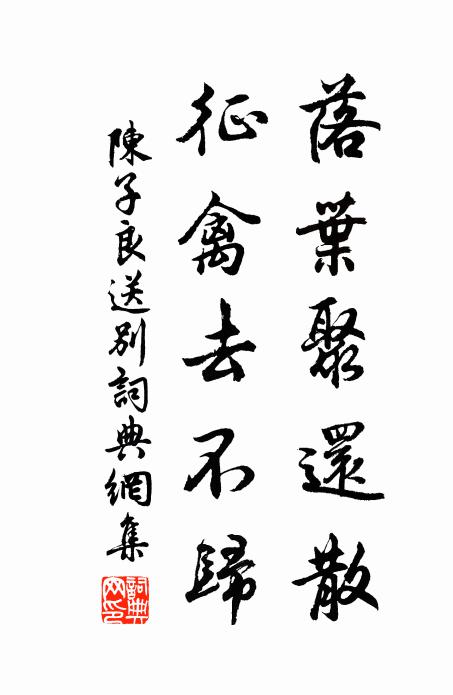 落葉聚還散
征禽去不歸
陳子良送別詞典網集
詞典網印